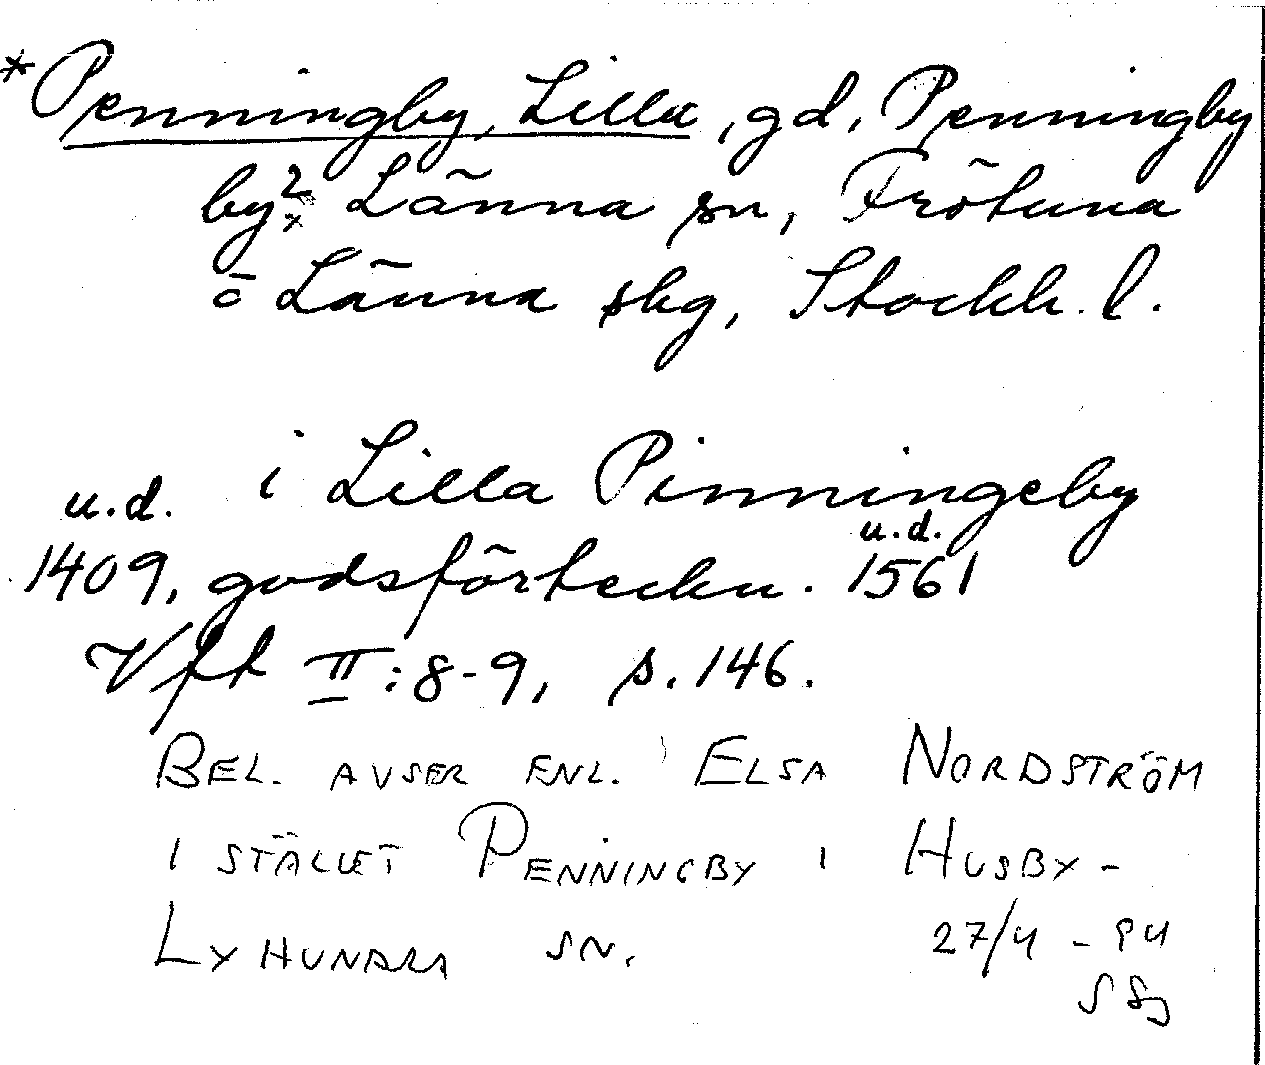 *Penningby, Lilla, gd, Penningby
by? Länna sn, Frötuna
o Länna skg, Stockh. l.
i Lilla Pinningeby
u.d. u.d.
1409, godsförteckn. 1561
Vft II:8-9, s. 146.
BEL. AVSER ENL. ELSA NORDSTRÖM
I STÄLLET PENNINGBY I HUSBY-
LYHUNDRA SN. 27/4 - 84